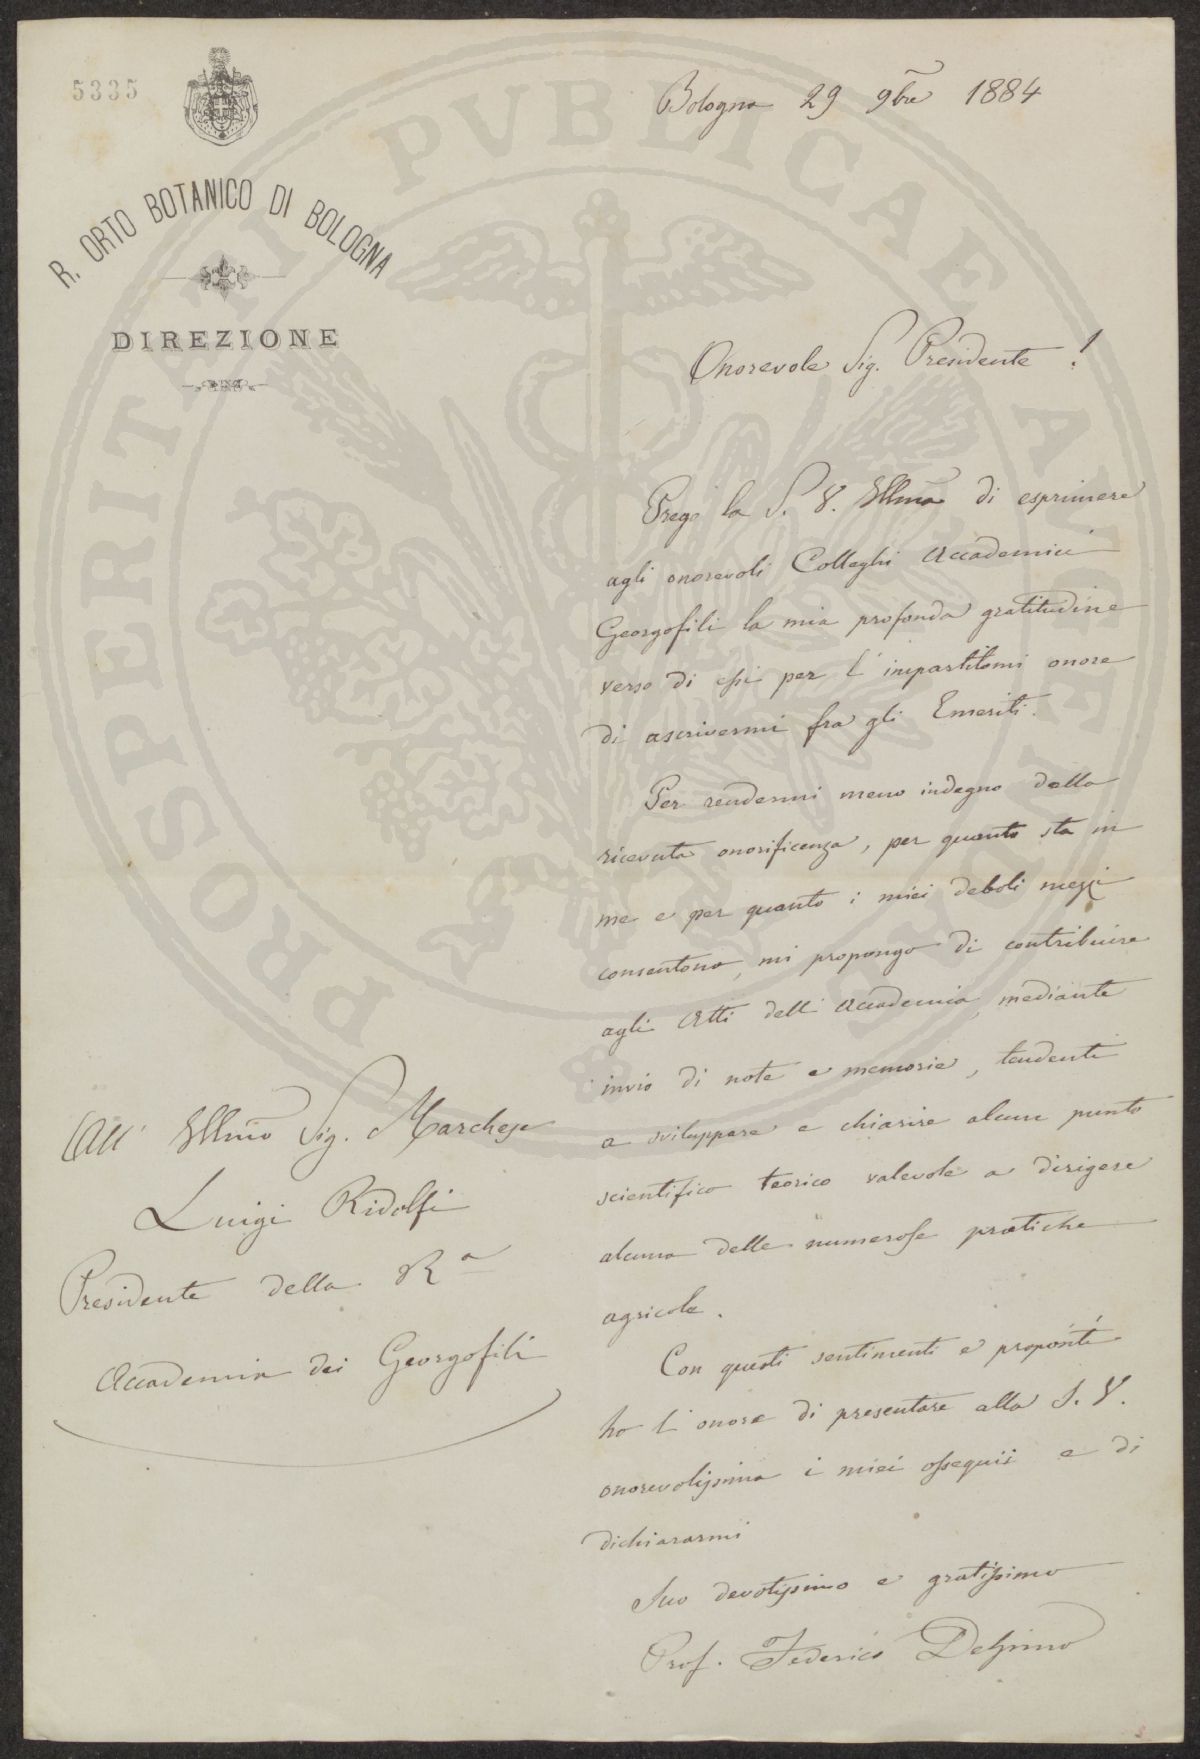 5335
R. ORTO BOTANICO DI BOLOGNA
DIREZIONE
Bologna 29 9bre 1884
Onorevole Sig. Presidente!
Prego la S. V. Illma di esprimere
agli onorevoli Colleghi Accademici
Georgofili la mia profonda gratitudine
verso di essi per l'impartitomi onore
di ascrivermi fra gli Emeriti.
Per rendermi meno indegno della
ricevuta onorificenza, per quanto sta in
me e per quanto i miei deboli mezzi
consentono, mi propongo di contribuire
agli Atti dell'Accademia, mediante
invio di note e memorie, tendenti
a sviluppare e chiarire alcun punto
scientifico teorico valevole a dirigere
alcuna delle numerose pratiche
agricole.
Con questi sentimenti e propositi
ho l'onore di presentare alla S. V.
onorevolissima i miei ossequii e di
dichiararmi
Suo devotissimo e gratissimo
Prof. Federico Delpino
All' Illmo Sig. Marchese
Luigi Ridolfi
Presidente della Ra
Accademia dei Georgofili
PROSPERITATI PVBLICAE AVGENDAE